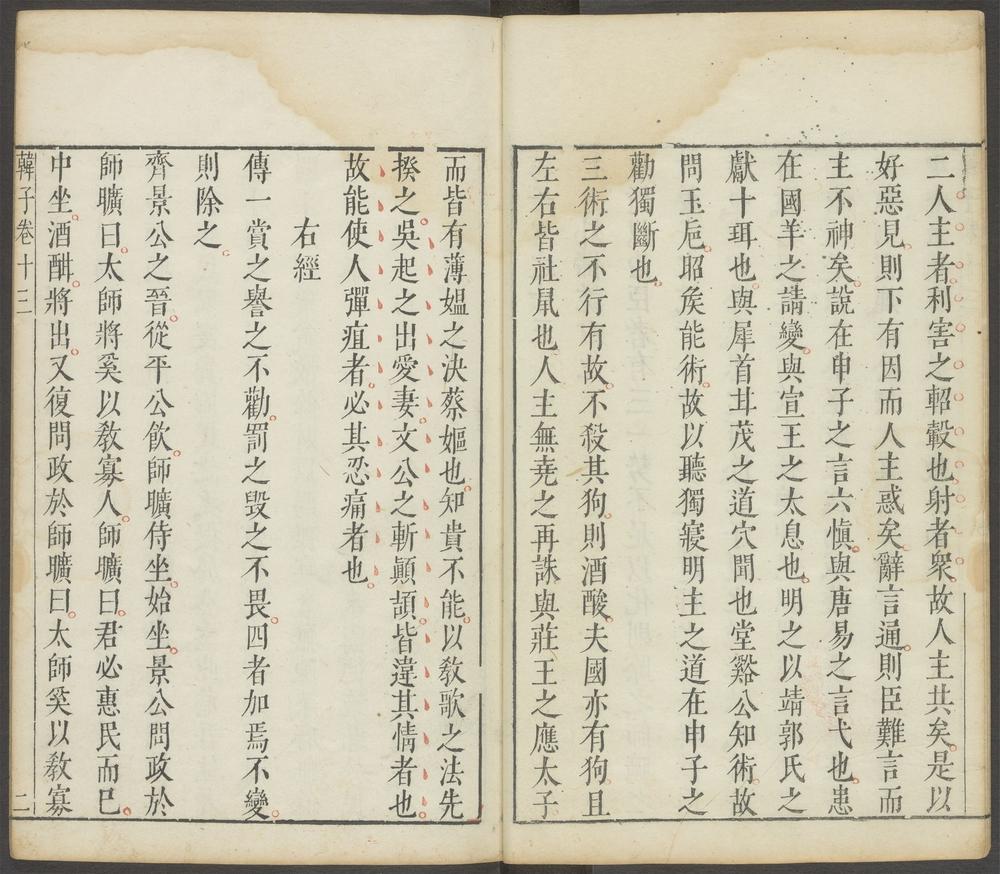 二人主者利害之軺轂也射者衆故人主共矣是以
好惡見則下有因而人主惑矣辭言通則臣難言而
主不神矣說在申子之言六愼與唐易之言弋也患
在國羊之請變與宣王之太息也明之以靖郭氏之
獻十珥也與犀首甘茂之道穴聞也堂谿公知術故
問玉巵昭矦能術故以聽獨寢明主之道在申子之
勸獨斷也
三術之不行有故不殺其狗則酒酸夫國亦有狗且
左右皆社鼠也人主無堯之再誅與莊王之應太子
而皆有薄媼之決蔡嫗也知貴不能以敎歌之法先
揆之吳起之出愛妻文公之斬顚頡皆違其情者也
故能使人彈疽者必其忍痛者也
右經
傳一賞之譽之不勸罰之毁之不畏四者加焉不變
則除之
齊景公之晉從平公飮師曠侍坐始坐景公問政於
師曠曰太師將奚以敎寡人師曠曰君必惠民而已
中坐酒酣將出又復問政於師曠曰太師奚以敎寡
韓子卷十三
二